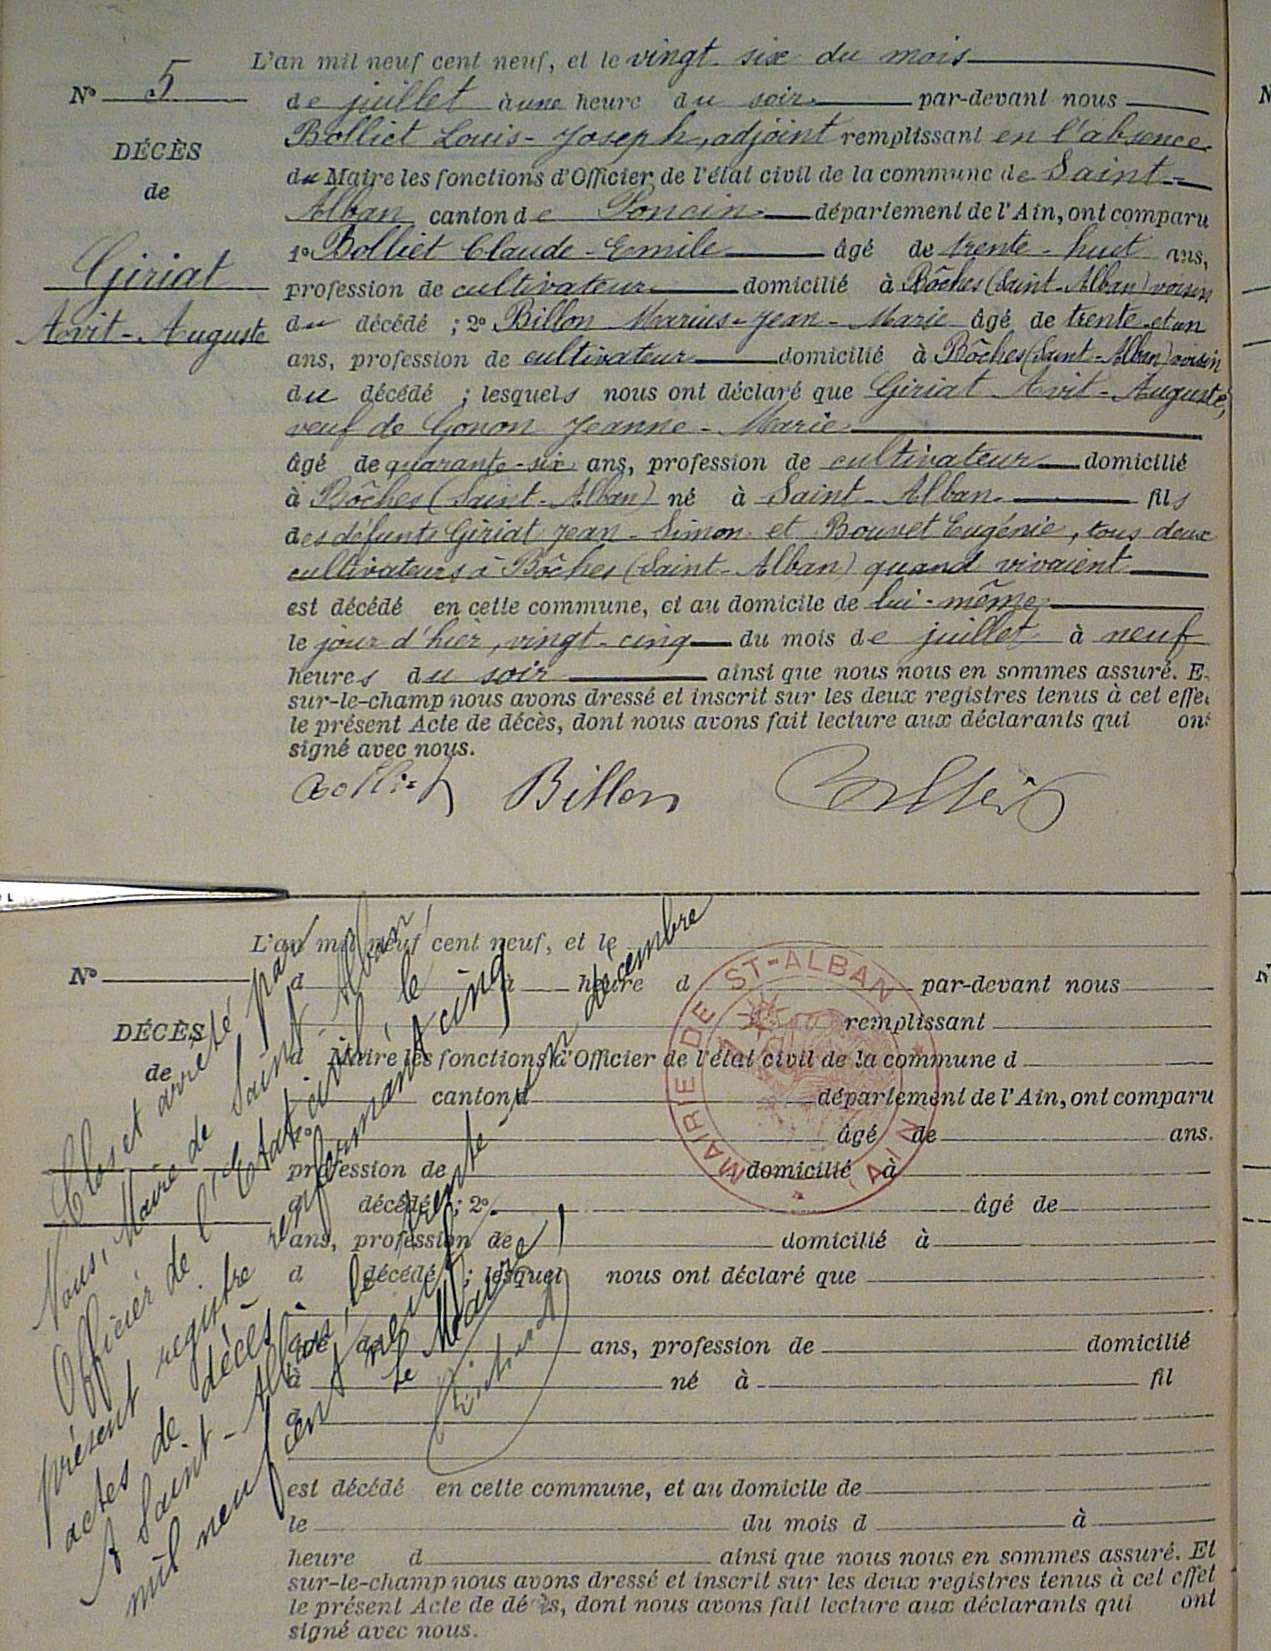 L'an mil neuf cent neuf, et le vingt six du mois
N° 5
de juillet à une heure du soir par-devant nous
Bolliet Louis-Joseph, adjoint remplissant en l'absence
DÉCÈS
du Maire les fonctions d'Officier de l'état civil de la commune de Saint-
de
Alban canton de Poncin département de l'Ain, ont comparu
1° Bolliet Claude-Emile âgé de trente-huit ans,
Giriat
profession de cultivateur domicilié à Bôches (Saint-Alban) voisin
Avit-Auguste
du décédé ; 2° Billon Marius-Jean-Marie âgé de trente et un
ans, profession de cultivateur domicilié à Bôches (Saint-Alban) voisin
du décédé ; lesquels nous ont déclaré que Giriat Avit-Auguste,
veuf de Gonon Jeanne-Marie
âgé de quarante-six ans, profession de cultivateur domicilié
à Bôches (Saint-Alban) né à Saint-Alban fils
des défunts Giriat Jean-Simon et Bouvet Eugénie, tous deux
cultivateurs à Bôches (Saint-Alban) quand vivaient
est décédé en cette commune, et au domicile de lui-même
le jour d'hier, vingt-cinq du mois de juillet à neuf
heures du soir ainsi que nous nous en sommes assuré. E
sur-le-champ nous avons dressé et inscrit sur les deux registres tenus à cet effe
le présent Acte de décès, dont nous avons fait lecture aux déclarants qui ont
signé avec nous.
Bolliet Billon Bolliet
L'an mil neuf cent neuf, et le
N° d à heure d par-devant nous
remplissant
DÉCÈS
d Maire les fonctions d'Officier de l'état civil de la commune d
de
canton d département de l'Ain, ont comparu
1° âgé de ans.
profession de domicilié à
d décédé ; 2° âgé de
ans, profession de domicilié à
d décédé ; lesquel nous ont déclaré que
âgé de ans, profession de domicilié
à né à fil
d
est décédé en cette commune, et au domicile de
le du mois d à
heure d ainsi que nous nous en sommes assuré. Et
sur-le-champ nous avons dressé et inscrit sur les deux registres tenus à cet effet
le présent Acte de décès, dont nous avons fait lecture aux déclarants qui ont
signé avec nous.
Clos et arrêté par
Nous, Maire de Saint-Alban,
Officier de l'Etat civil, le
présent registre renfermant cinq
actes de décès.
A Saint-Alban, le trente-un décembre
mil neuf cent neuf
Le Maire,
MAIRIE DE ST-ALBAN
(AIN)